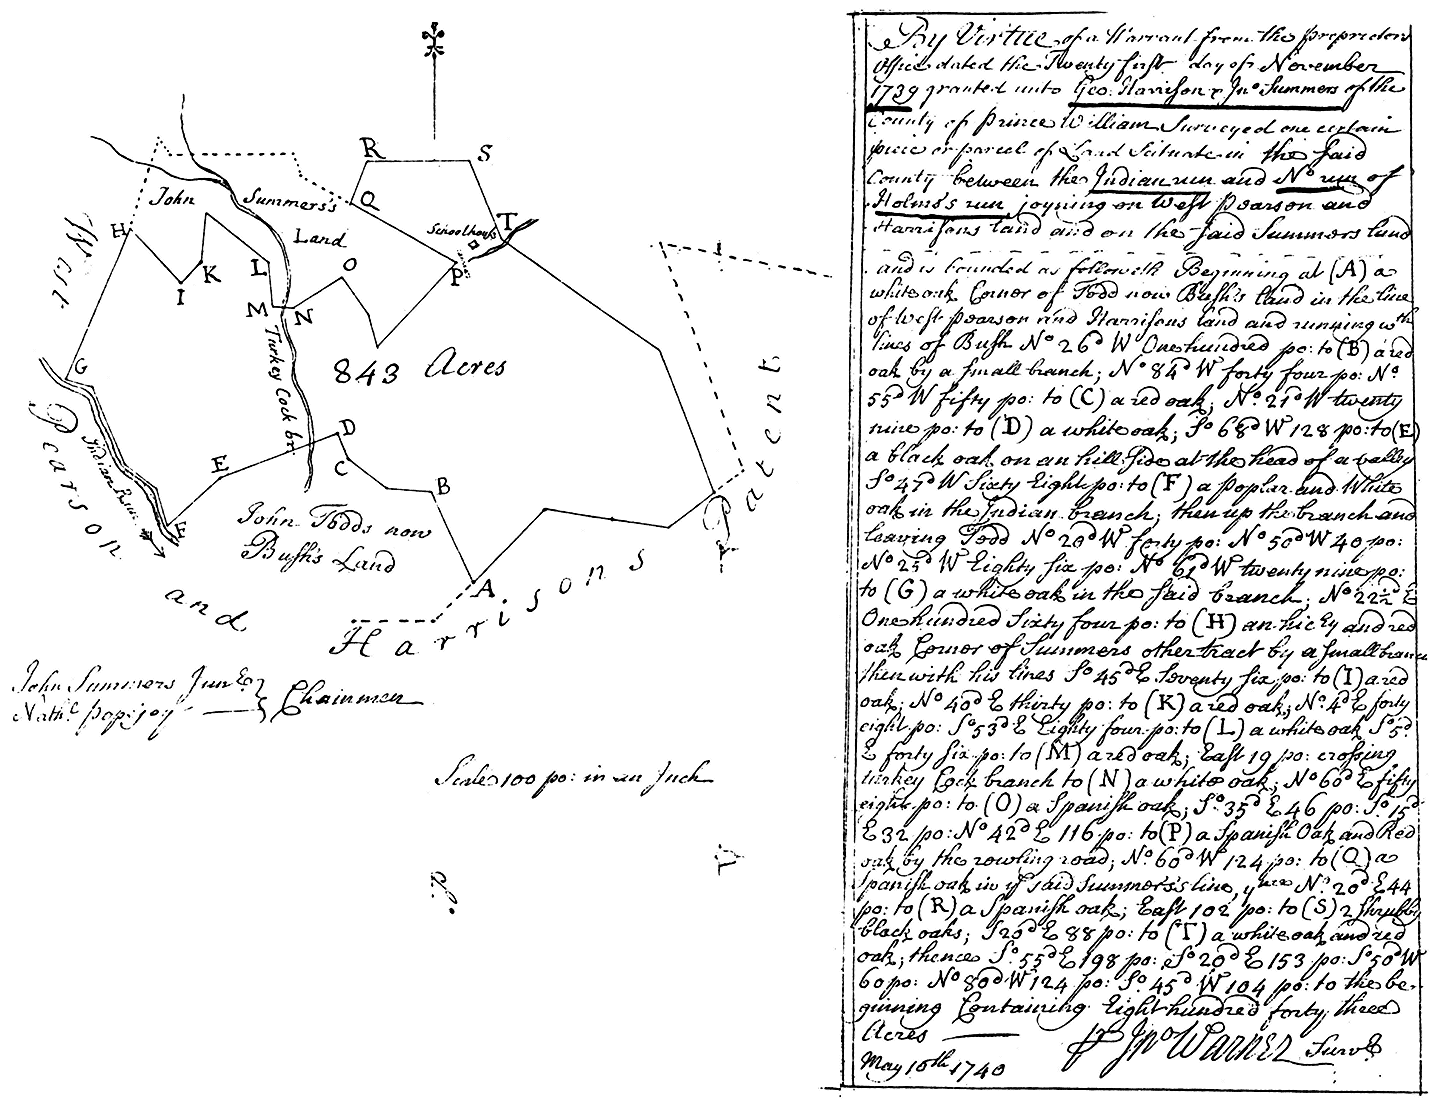 R
S
John
Summers's
Q
H
Schoolhouse
T
Land
L
O
K
P
I
M
N
West
Turkey Cock br:
G
843 Acres
D
Pearson
Indian Run
E
C
B
F
John Todds now
Bush's Land
A
and
Harrisons
Patent
John Summers Junr.
Nathl. Popejoy
Chainmen
Scale 100 po: in an Inch
By Virtue of a Warrant from the proprietors
Office dated the Twenty first day of November
1739 granted unto Geo. Harrison & Jno Summers of the
County of Prince William Surveyed one certain
piece or parcel of Land Scituate in the said
County between the Indian run and No run of
Holms's run joyning on West Pearson and
Harrisons land and on the said Summers land
and is bounded as followeth Beginning at (A) a
white oak Corner of Todd now Bush's land in the line
of West pearson and Harrisons land and running wth
lines of Bush No 26d W One hundred po: to (B) a red
oak by a small branch; No 84d W forty four po: No
55d W fifty po: to (C) a red oak; No. 21d W twenty
nine po: to (D) a white oak; So 68d W 128 po: to (E)
a black oak on an hill side at the head of a valley
So 47d W Sixty Eight po: to (F) a poplar and White
oak in the Indian branch; then up the branch and
leaving Todd No 20d W forty po: No 50d W 40 po:
No 25d W Eighty six po: No 61d W twenty nine po:
to (G) a white oak in the said branch; No 22½d E
One hundred Sixty four po: to (H) an hicky and red
oak Corner of Summers other tract by a small branch
then with his lines So 45d E Seventy six po: to (I) a red
oak; No 40d E thirty po: to (K) a red oak; No. 4d E forty
eight po: So 53d E Eighty four po: to (L) a white oak So 5d.
E forty six po: to (M) a red oak; East 19 po: crossing
turkey Cock branch to (N) a white oak; No 60d E fifty
eight po: to (O) a Spanish oak; So. 35d E 46 po: So. 15d
E 32 po: No 42d E 116 po: to (P) a Spanish Oak and Red
oak by the rowling road; No 60d W 124 po: to (Q) a
Spanish oak in ye said Summers's line, thence No. 20d E 44
po: to (R) a Spanish oak; East 102 po: to (S) 2 shrubby
black oaks; S 20d E 88 po: to (T) a white oak and red
oak; thence So. 55d E 198 po: So 20d E 153 po: So 50d W
60 po: No 80d W 124 po: So. 45d W 104 po: to the be-
ginning Containing Eight hundred forty three
Acres
pr Jno Warner Survr
May 10th 1740